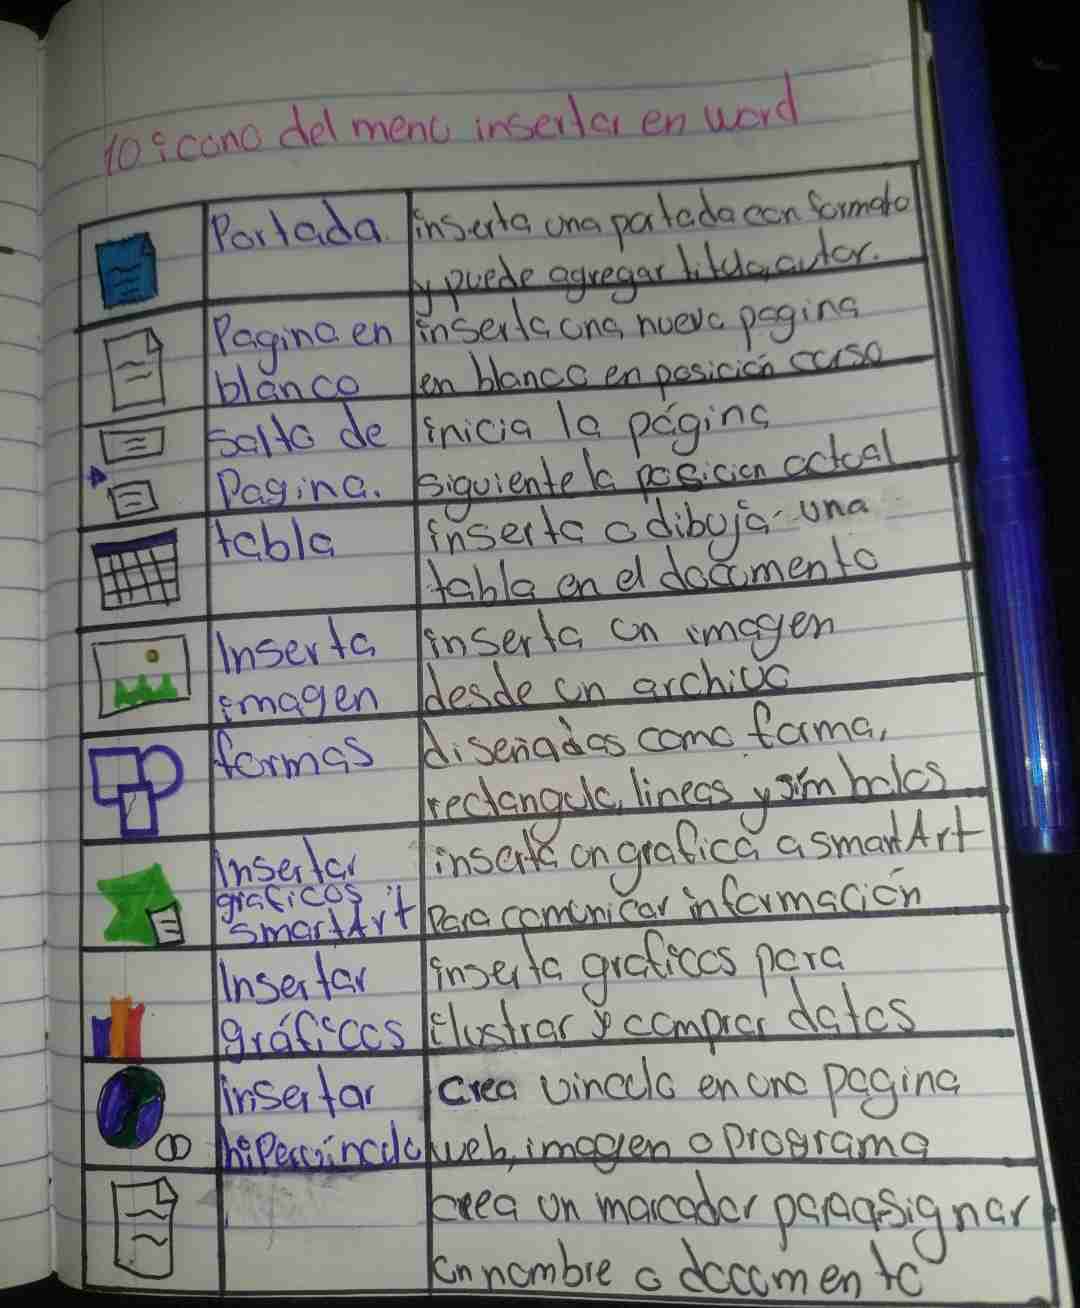 10 icono del menu insertar en word
Portada.
inserta una portada con formato
y puede agregar titulo, autor.
Pagina en
blanco
inserta una nueva pagina
en blanco en posición curso
Salto de
Pagina.
inicia la página
siguiente la posicion actual
tabla
inserta o dibuja una
tabla en el documento
Inserta
imagen
inserta un imagen
desde un archivo
formas
diseñadas como forma,
rectangulo, lineas y simbolos
Insertar
graficos
smartArt
inserta un grafica a smartArt
Para comunicar información
Insertar
gráficos
inserta graficos para
ilustrar y comprar datos
insertar
hipervinculo
crea vinculo en una pagina
web, imagen o programa
crea un marcador para asignar
un nombre o documento